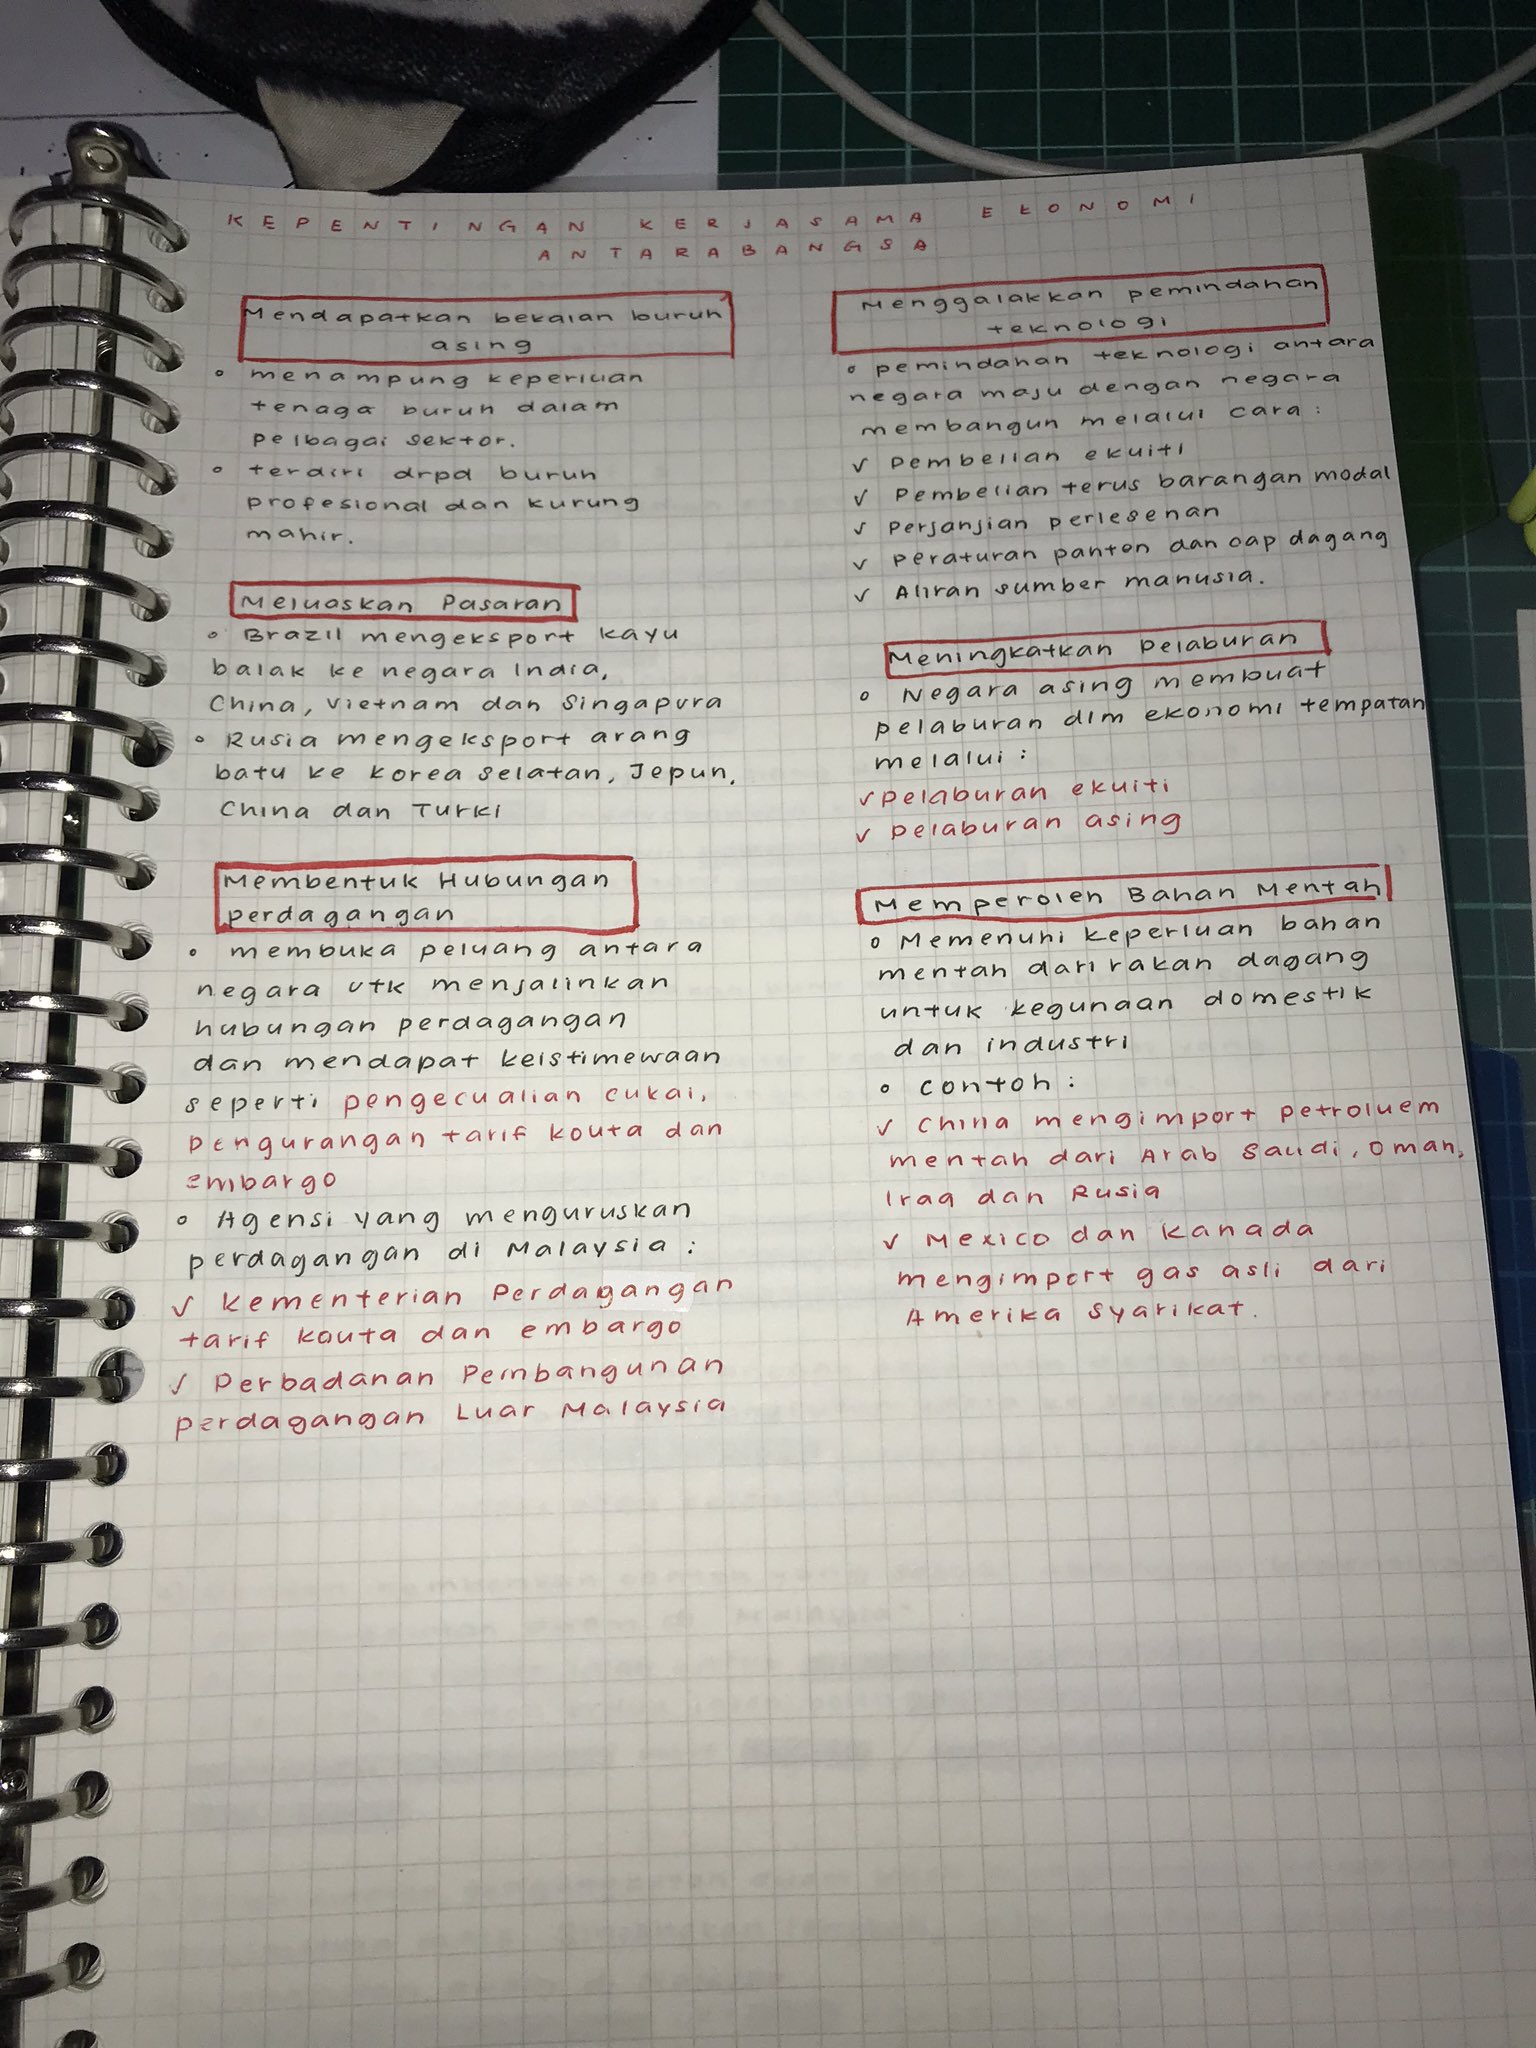 KEPENTINGAN KERJASAMA EKONOMI
ANTARABANGSA
Mendapatkan bekalan buruh
asing
• menampung keperluan
tenaga buruh dalam
pelbagai sektor.
• terdiri drpd buruh
profesional dan kurung
mahir.
Meluaskan Pasaran
• Brazil mengeksport kayu
balak ke negara India,
China, Vietnam dan Singapura
• Rusia mengeksport arang
batu ke Korea Selatan, Jepun,
China dan Turki
Membentuk Hubungan
perdagangan
• membuka peluang antara
negara utk menjalinkan
hubungan perdagangan
dan mendapat keistimewaan
seperti pengecualian cukai,
pengurangan tarif kouta dan
embargo
• Agensi yang menguruskan
perdagangan di Malaysia:
✓ Kementerian Perdagangan
tarif kouta dan embargo
✓ Perbadanan Pembangunan
perdagangan Luar Malaysia
Menggalakkan pemindahan
teknologi
• pemindahan teknologi antara
negara maju dengan negara
membangun melalui cara:
✓ Pembelian ekuiti
✓ Pembelian terus barangan modal
✓ Perjanjian perlesenan
✓ Peraturan panten dan cap dagang
✓ Aliran sumber manusia.
Meningkatkan Pelaburan
• Negara asing membuat
pelaburan dlm ekonomi tempatan
melalui:
✓ pelaburan ekuiti
✓ pelaburan asing
Memperoleh Bahan Mentah
• Memenuhi keperluan bahan
mentah dari rakan dagang
untuk kegunaan domestik
dan industri
• contoh:
✓ China mengimport petroluem
mentah dari Arab Saudi, Oman,
Iraq dan Rusia
✓ Mexico dan Kanada
mengimport gas asli dari
Amerika Syarikat.